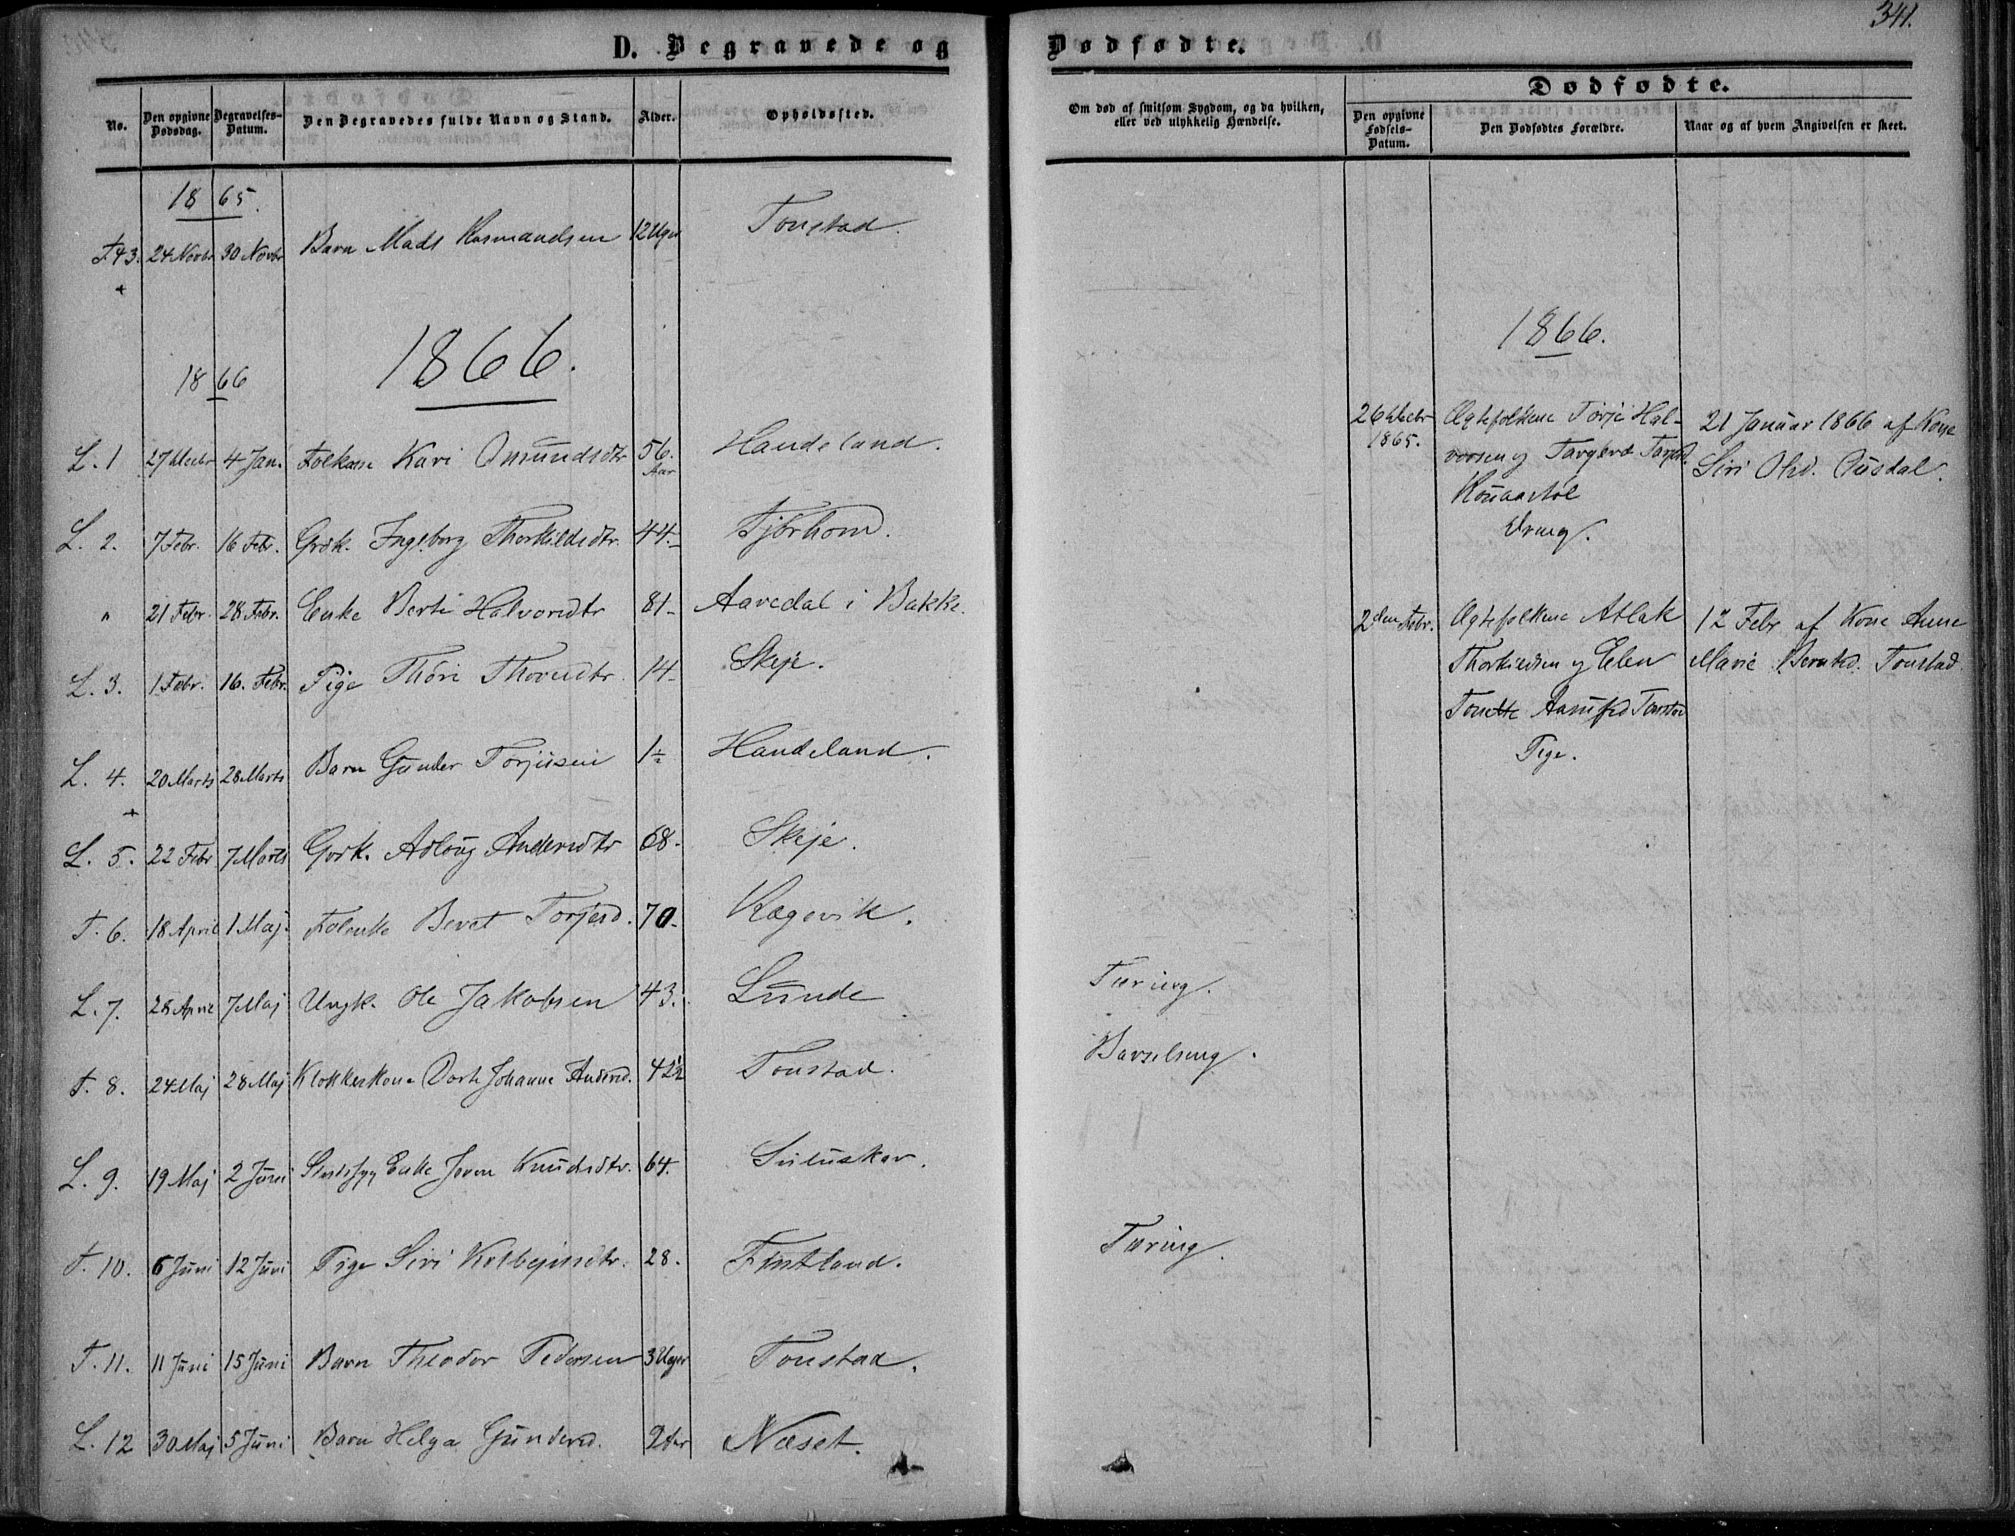 341.
D. Begravede og
Dødfødte.
No.
Den opgivne Dødsdag.
Begravelses-Datum.
Den Begravedes fulde Navn og Stand.
Alder.
Opholdssted.
Om død af smitsom Sygdom, og da hvilken, eller ved ulykkelig Hændelse.
Dødfødte.
Den opgivne Fødsels-Datum.
Den Dødfødtes Forældre.
Naar og af hvem Angivelsen er skeet.
1865.
T. 43. 24 Novbr 30 Novbr Barn Mads Rasmundsen 12 Uger Tonstad.
1866.
1866
1866.
L. 1 27 Decbr 4 Jan. Kari Omundsdtr 56. Aar Haudeland.
L. 2. 7 Febr. 16 Febr. Grdk. Ingeborg Thorkildsdtr. 44.- Fjórhom.
" 21 Febr. 28 Febr. Enke Berte Halvorsdtr 81- Aavedal i Bakke.
L. 3. 1 Febr. 16. Febr. Pige Thóri Thorsdtr. 14- Skeje.
L. 4. 20 Marts 28 Marts Barn Gunder Torjusen 1½ Haudeland.
L. 5. 22 Febr 7 Marts Gdrk. Asloug Andersdtr 68.- Skeje.
T. 6. 18 April 1 Maj. Beret Torjesd. 70- Kægevik.
L. 7. 28 April 7 Maj Ungk. Ole Jakobsen 43. Lunde Tæring.
T. 8. 24 Maj 28 Maj Klokkerkone Dorte Johanne Andersd. 42½ Tonstad. Barselseng.
L. 9. 19 Maj 2 Juni Enke Joren Knudsdtr. 64. Siluskar.
T. 10. 6 Juni 12 Juni Pige Siri Kolbejnsdtr. 28. Fintland. Tæring.
T. 11. 11 Juni 15 Juni Barn Theodor Pedersen 3 Uger Tonstad.
L. 12 30 Maj 5 Juni Barn Helga Gundersd. 2 Aar Næset.
26 Decbr 1865. Ægtefolkene Torje Hal-
vorsen og Targerd
Kouaastøl
Dreng.
21 Januar 1866 af Kone
Siri Olsd. Ousdal.
2den Febr. Ægtefolkene Atlak
Thorkildsen og Elen
Tonette Tonstad
Pige.
12 Febr af Kone Anne
Marie Berntsd. Tonstad.